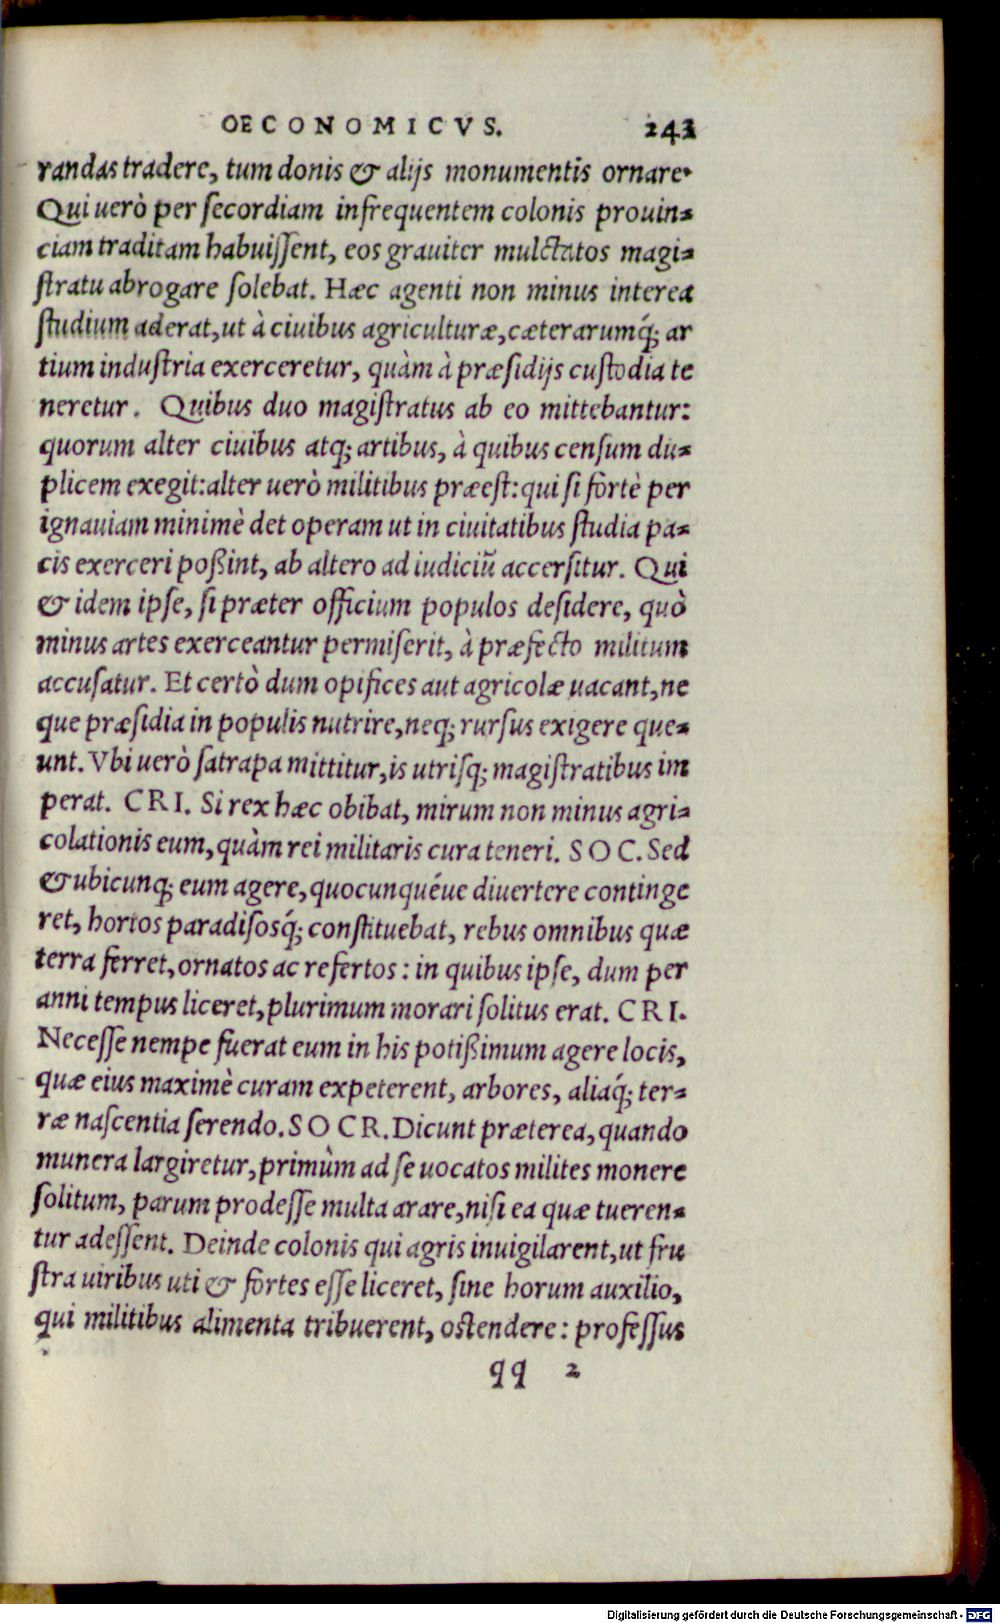 OECONOMICVS. 243
randas tradere, tum donis & alijs monumentis ornare.
Qui uerò per ſecordiam infrequentem colonis prouin-
ciam traditam habuiſſent, eos grauiter mulctatos magi-
ſtratu abrogare ſolebat. Hæc agenti non minus interea
ſtudium aderat, ut à ciuibus agriculturæ, cæterarumq́; ar
tium induſtria exerceretur, quàm à præſidijs cuſtodia te
neretur. Quibus duo magiſtratus ab eo mittebantur:
quorum alter ciuibus atq; artibus, à quibus cenſum du-
plicem exegit: alter uerò militibus præeſt: qui ſi fortè per
ignauiam minimè det operam ut in ciuitatibus ſtudia pa-
cis exerceri poßint, ab altero ad iudiciũ accerſitur. Qui
& idem ipſe, ſi præter officium populos deſidere, quò
minus artes exerceantur permiſerit, à præfecto militum
accuſatur. Et certò dum opifices aut agricolæ uacant, ne
que præſidia in populis nutrire, neq; rurſus exigere que-
unt. Vbi uerò ſatrapa mittitur, is utriſq; magiſtratibus im
perat. CRI. Si rex hæc obibat, mirum non minus agri-
colationis eum, quàm rei militaris cura teneri. SOC. Sed
& ubicunq; eum agere, quocunquéue diuertere continge
ret, hortos paradiſosq́; conſtituebat, rebus omnibus quæ
terra ferret, ornatos ac refertos: in quibus ipſe, dum per
anni tempus liceret, plurimum morari ſolitus erat. CRI.
Neceſſe nempe fuerat eum in his potißimum agere locis,
quæ eius maximè curam expeterent, arbores, aliaq́; ter-
ræ naſcentia ſerendo. SOCR. Dicunt præterea, quando
munera largiretur, primùm ad ſe uocatos milites monere
ſolitum, parum prodeſſe multa arare, niſi ea quæ tueren-
tur adeſſent. Deinde colonis qui agris inuigilarent, ut fru
ſtra uiribus uti & fortes eſſe liceret, ſine horum auxilio,
qui militibus alimenta tribuerent, oſtendere: profeſſus
qq 2
Digitalisierung gefördert durch die Deutsche Forschungsgemeinschaft - DFG